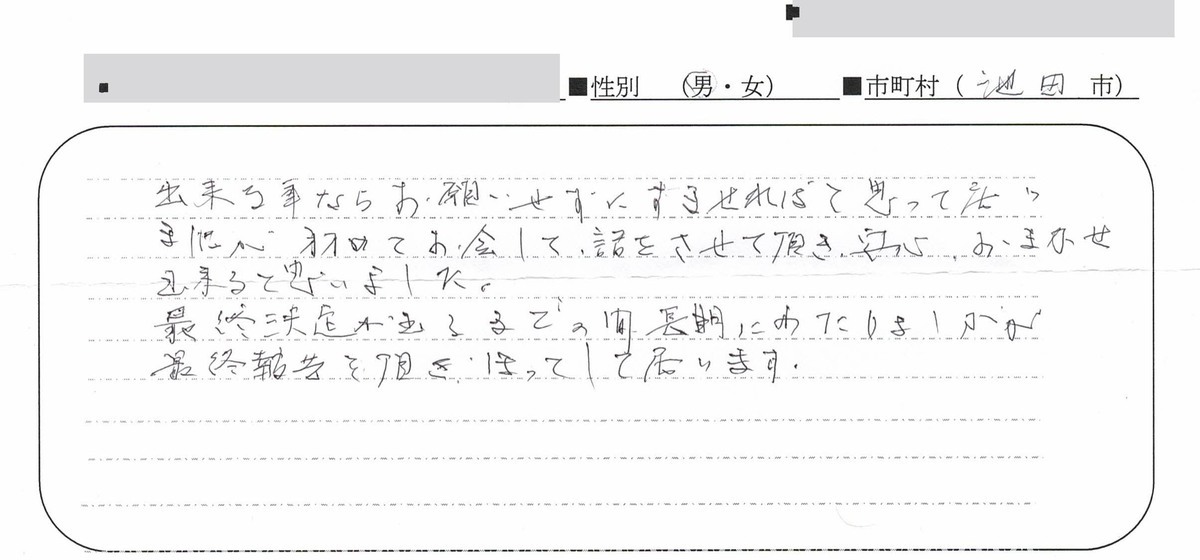 ■性別 (男・女) ■市町村 ( 池田 市)
出来る事ならお願いせずにすませればと思って居り
ましたが 初めてお会して、話をさせて頂き、安心、おまかせ
出来ると思いました。
最終決定が出るまでの間 長期にわたりましたが
最終報告を頂き、ほっとして居います。